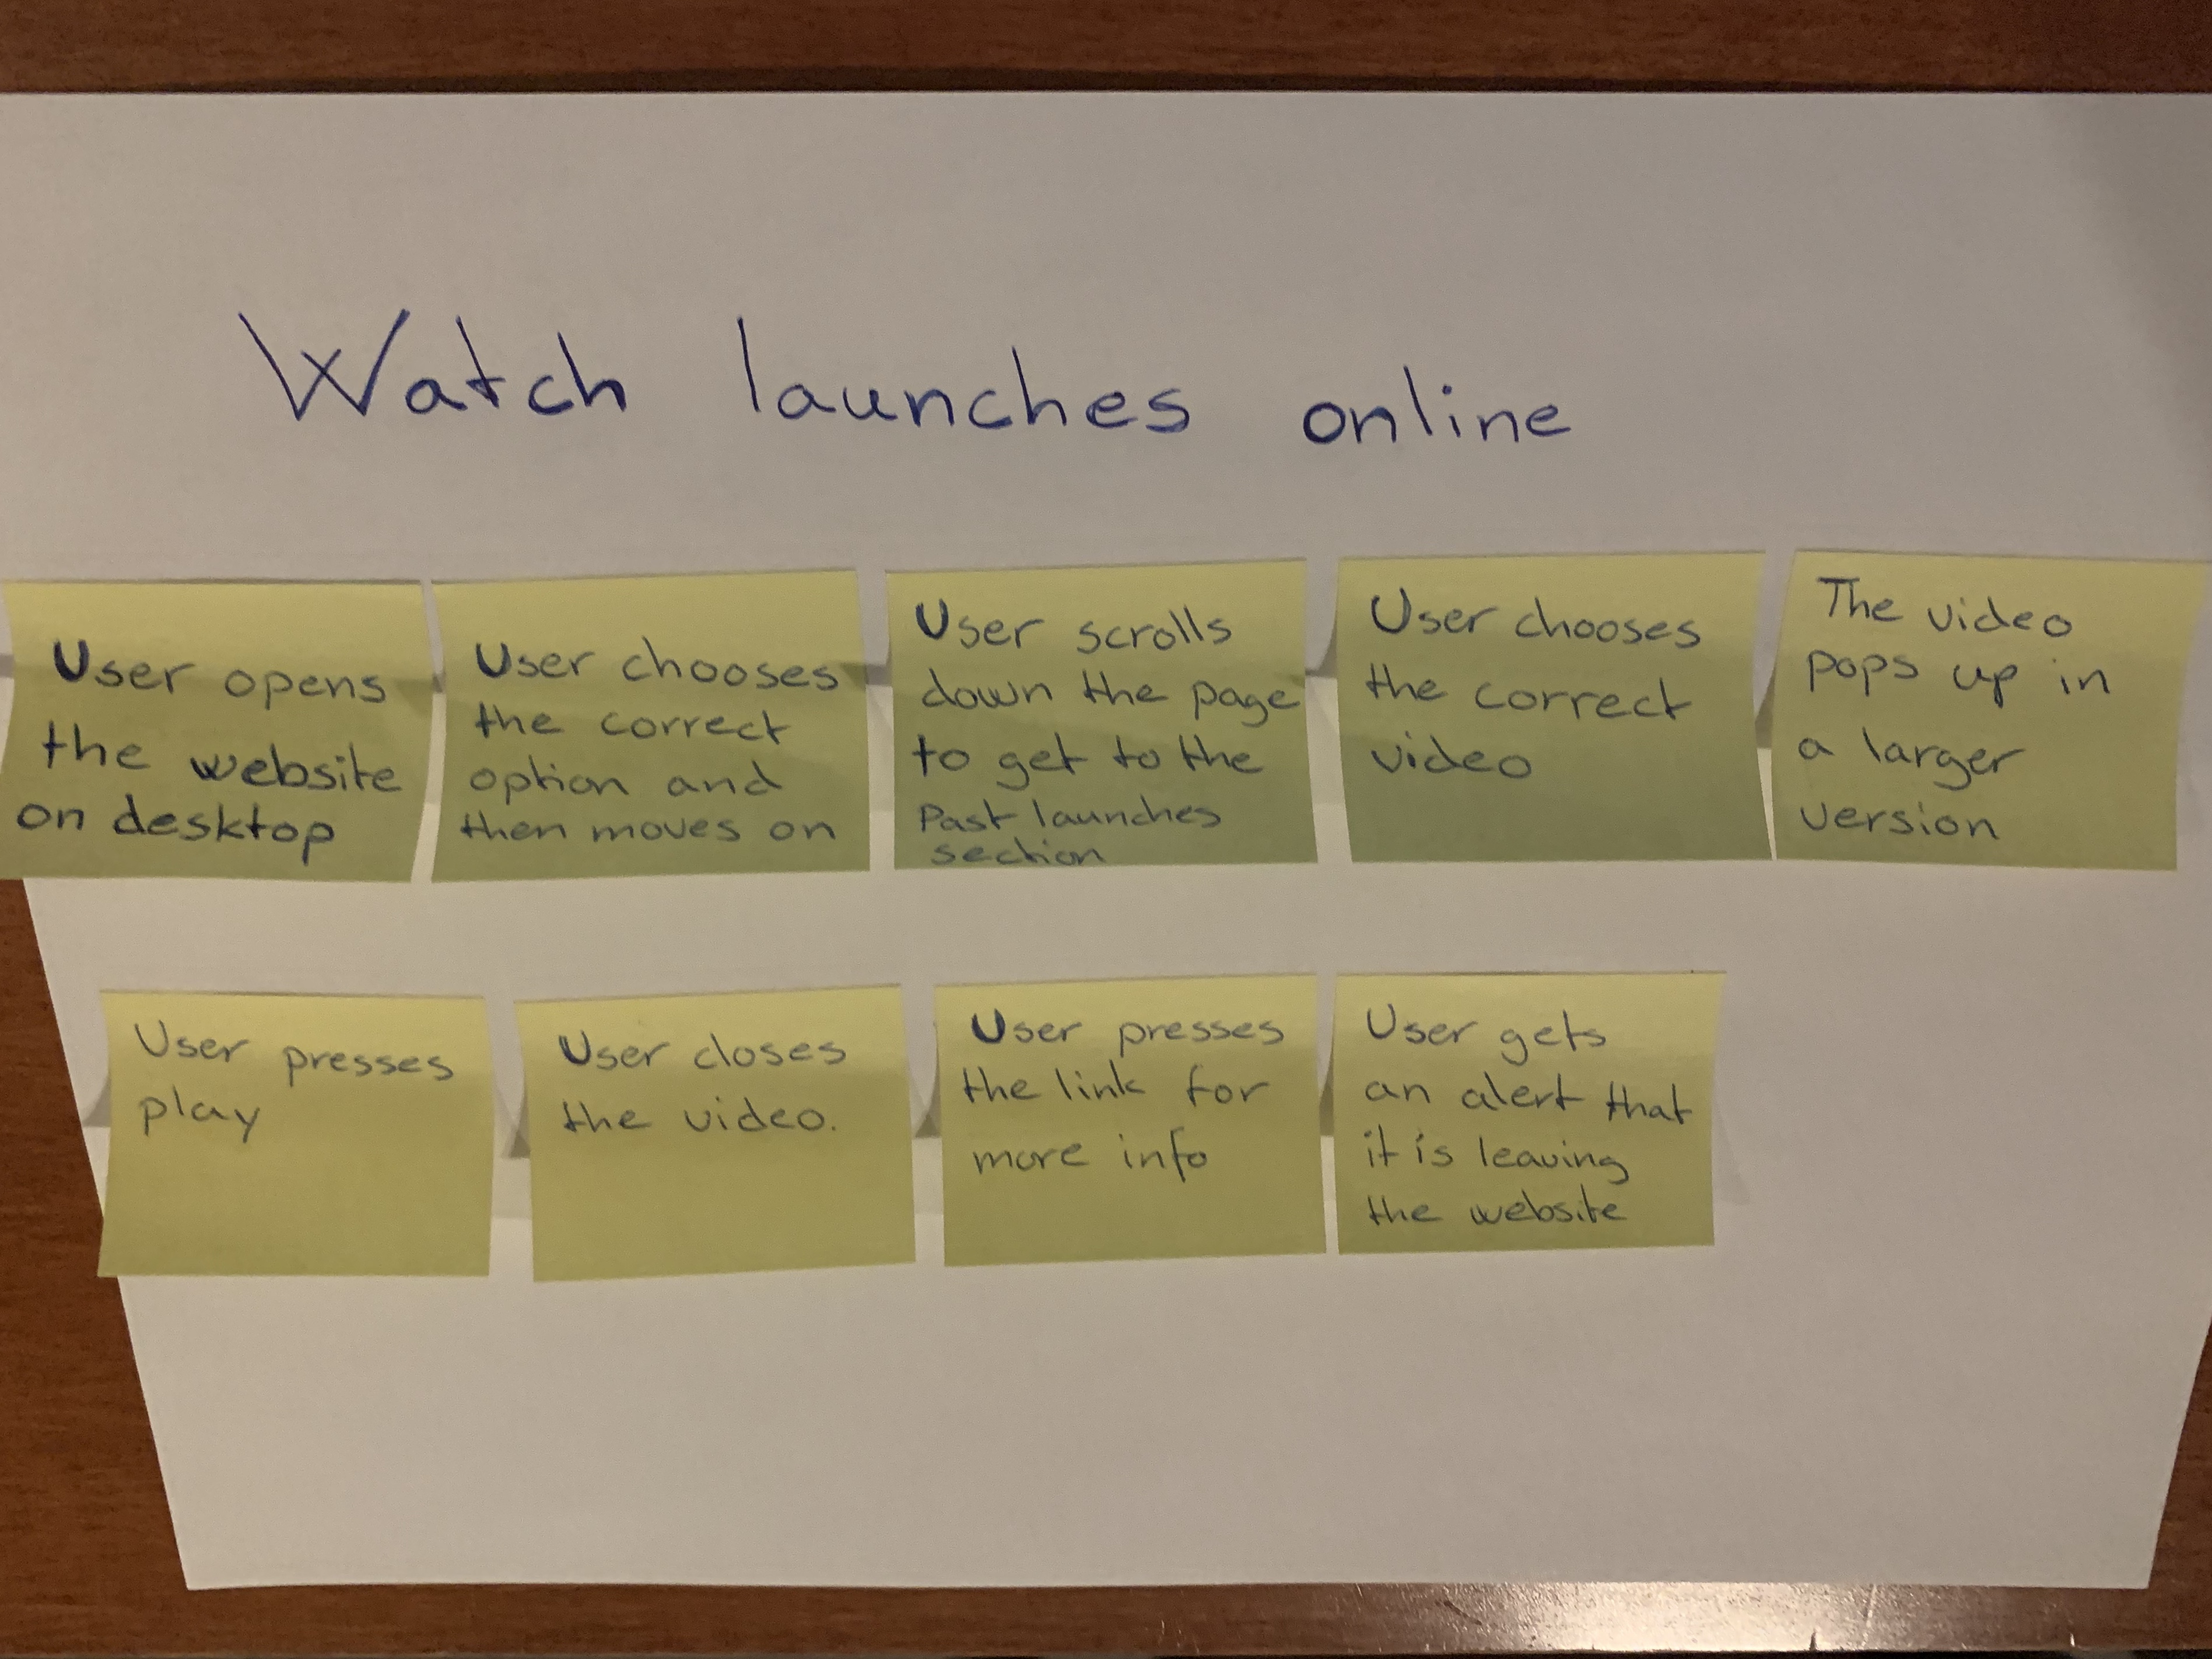 Watch launches online
User opens
the website
on desktop
User chooses
the correct
option and
then moves on
User scrolls
down the page
to get to the
Past launches
section
User chooses
the correct
video
The video
pops up in
a larger
version
User presses
play
User closes
the video.
User presses
the link for
more info
User gets
an alert that
it is leaving
the website